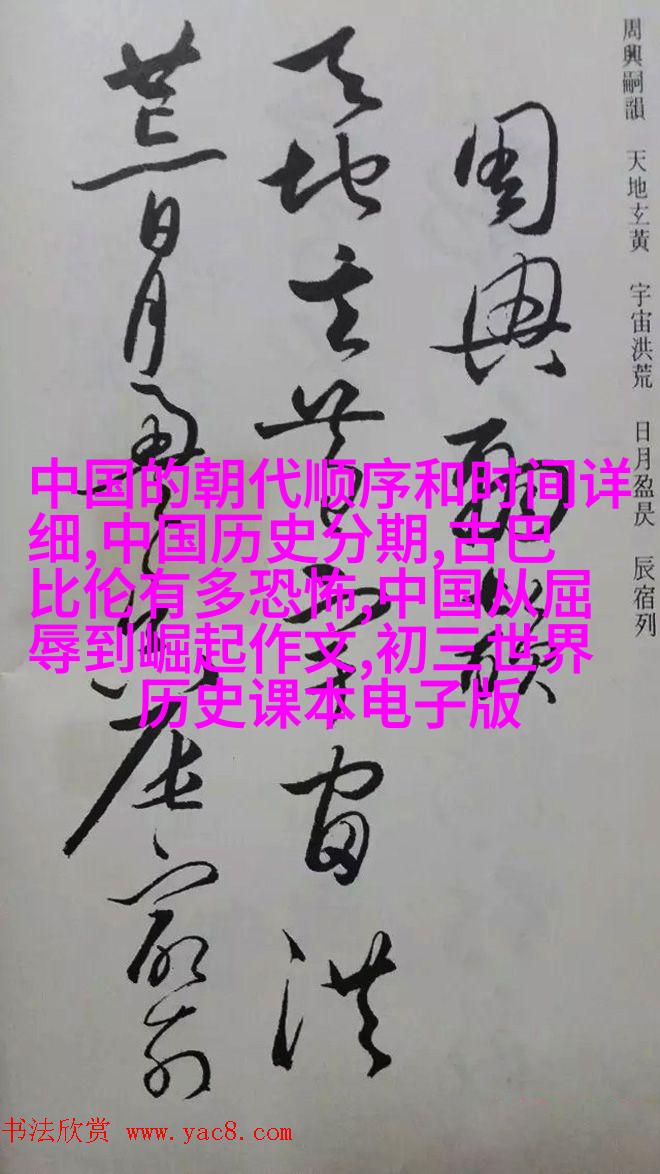 周興嗣韻 天地玄黃 宇宙洪荒 日月盈昃 辰宿列
周興嗣韻
天地玄黃宇宙洪
荒日月盈昃辰宿列
中国的朝代顺序和时间详
细,中国历史分期,古巴
比伦有多恐怖,中国从屈
辱到崛起作文,初三世界
历史课本电子版
书法欣赏 www.yac8.com